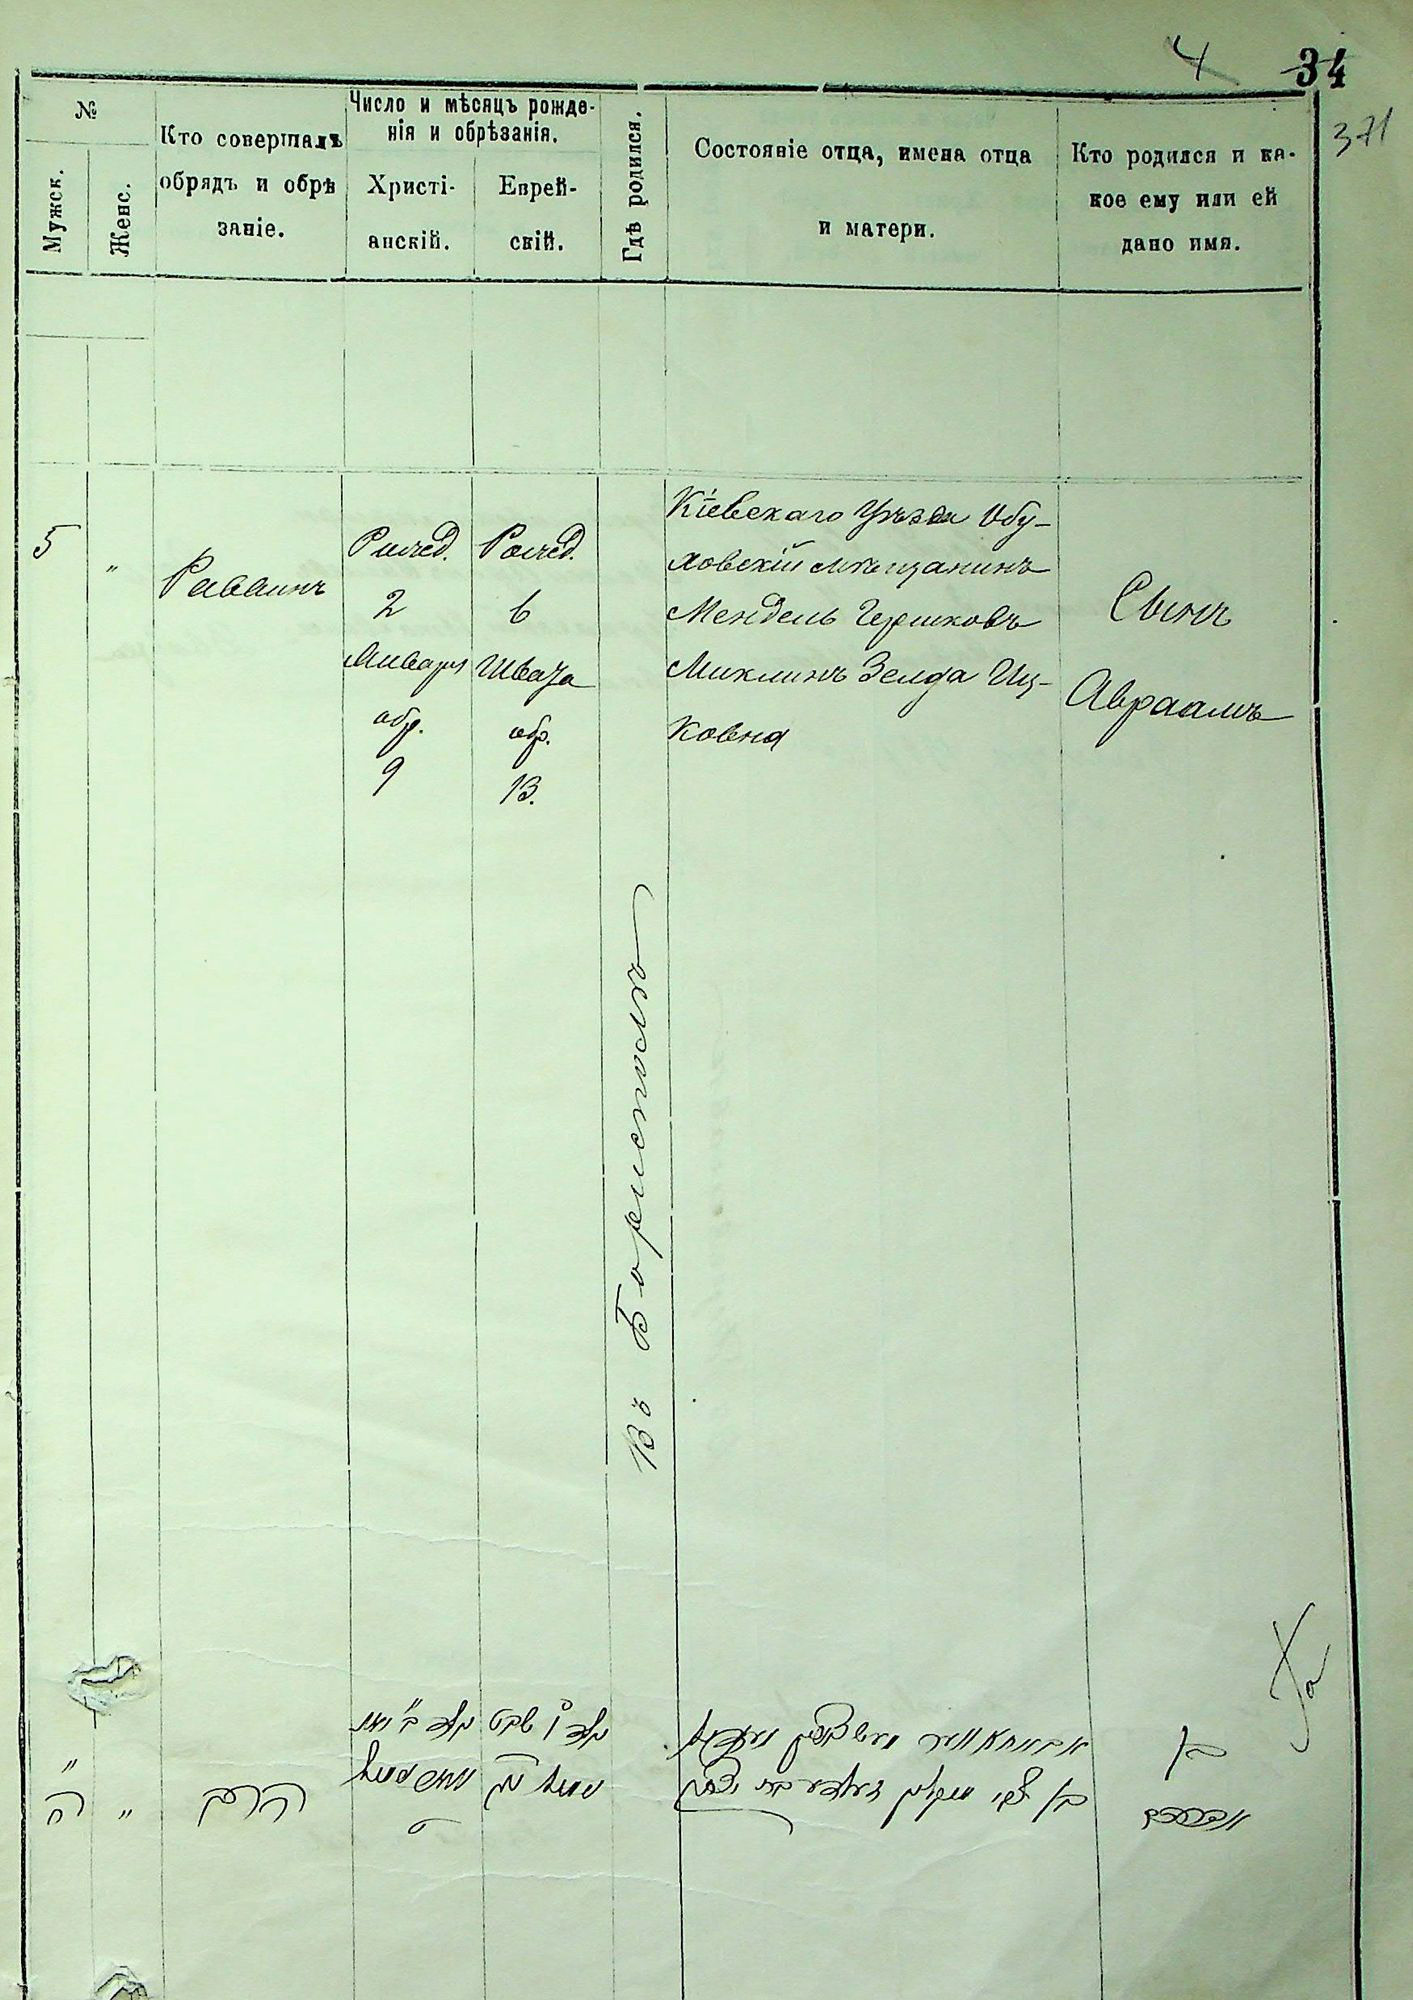 4
34
371
№
Мужск.
Женс.
Кто совершалъ
обрядъ и обрѣ
заніе.
Число и мѣсяцъ рожде-
нія и обрѣзанія.
Христі-
анскій.
Еврей-
скій.
Гдѣ родился.
Состояніе отца, имена отца
и матери.
Кто родился и ка-
кое ему или ей
дано имя.
5
"
Раввинъ
Рожд.
2
Января
обр.
9
Рожд.
6
Швата
обр.
13.
Въ Борисполѣ
Кіевскаго Уѣзда Обу-
ховскій мѣщанинъ
Мендель Гершковъ
Миклинъ Зелда Иц-
ковна
Сынъ
Авраамъ
"
ה
"
הרב
שבט
בן
אברהם